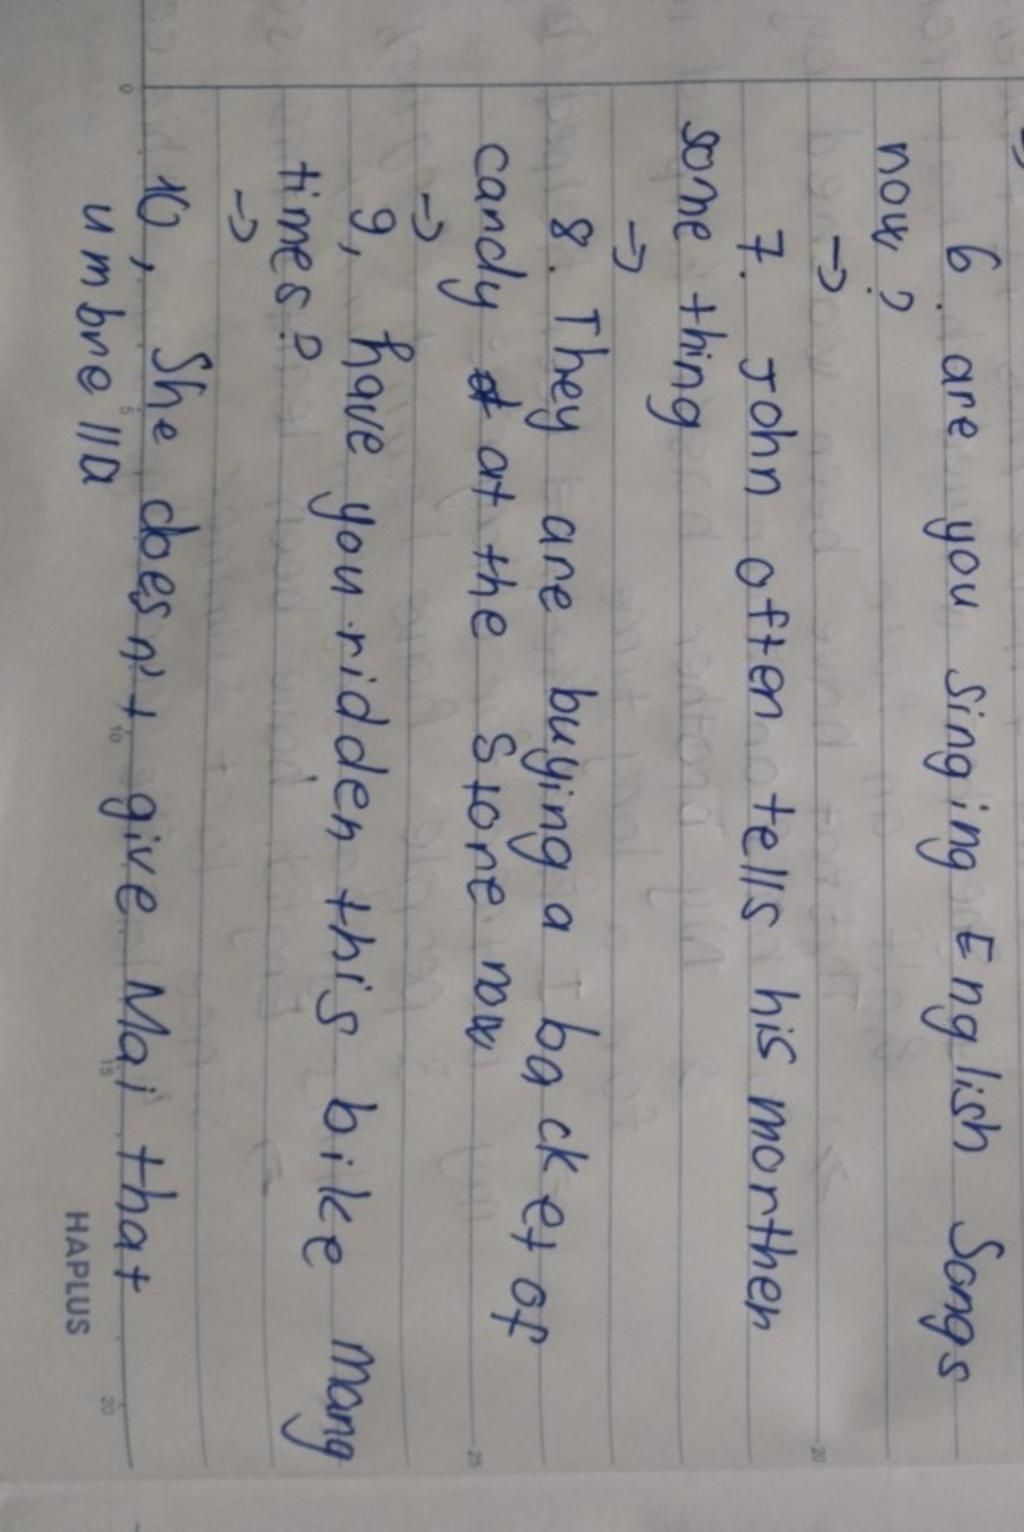 6. are you singing English Songs
now?
->
7. John often tells his morther
some thing
->
8. They are buying a backet of
candy at the Store now
->
9, have you ridden this bike many
times?
->
10, She doesn't give Mai that
umbrella
HAPLUS
0
5
10
15
20
20
25